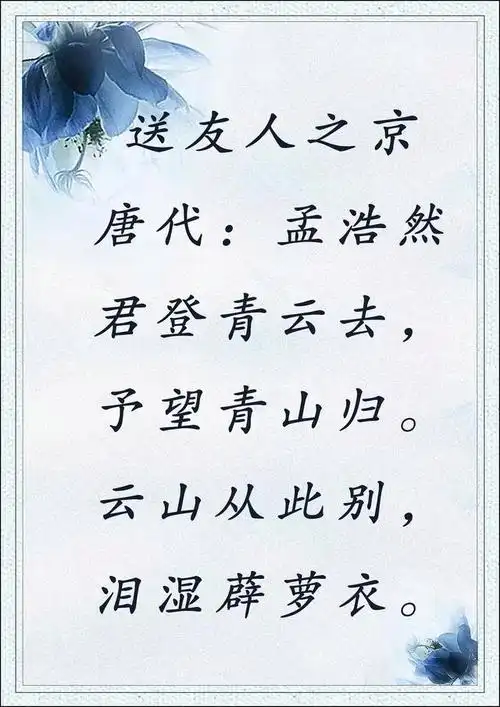 送友人之京
唐代：孟浩然
君登青云去，
予望青山归。
云山从此别，
泪湿薜萝衣。